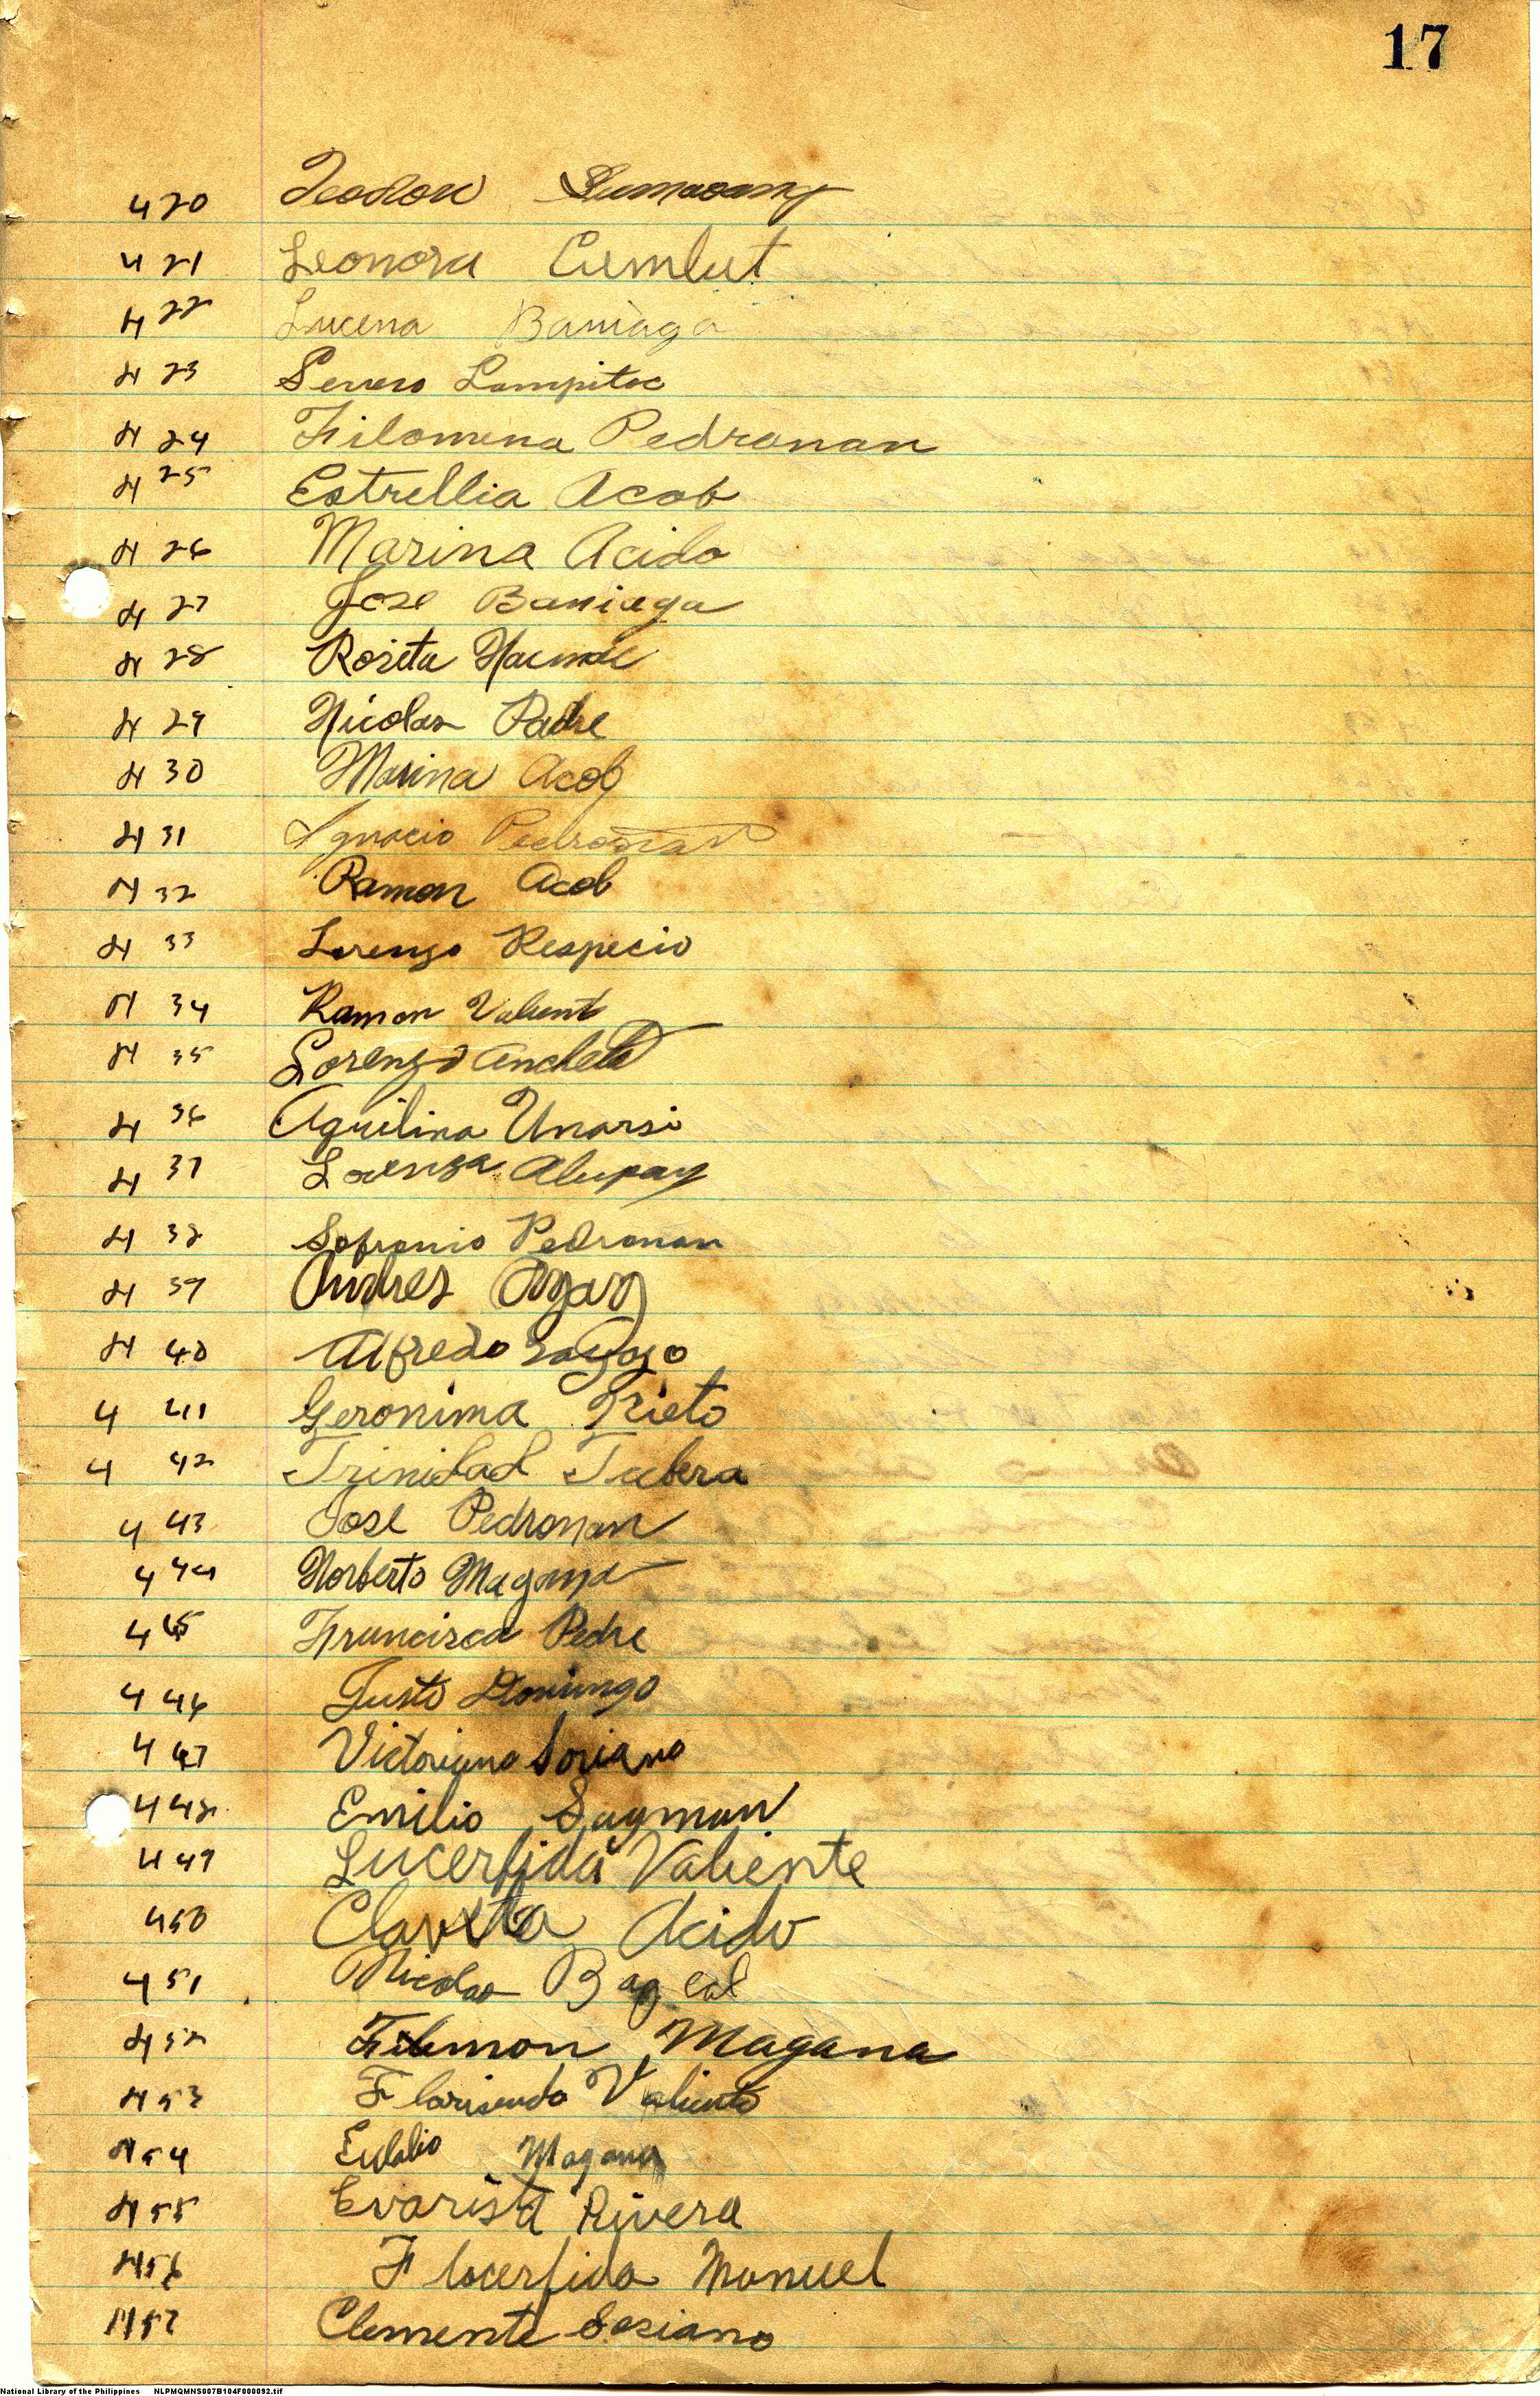 17
420 Teodoro Sumaoang
421 Leonora Cumlut
422 Lucena Baniaga
423 Severo Lampitoc
424 Filomena Pedronan
425 Estrellia Acob
426 Marina Acido
427 Jose Baniaga
428 Rosita
429 Nicolas Padre
430 Marina Acob
431 Ignacio Pedronan
432 Ramon Acob
433 Lorenzo Respecio
434 Ramon Valient
435 Lorenzo Ancheta
436 Aquilina Unarsi
437 Lorenza Alupay
438 Sofronio Pedronan
439 Andres Agag
440 Alfredo
441 Geronima Prieto
442 Trinidad Tubera
443 Jose Pedronan
444 Norberto Magana
445 Francisca Pedre
446 Justo Domingo
447 Victoriano Soriano
448 Emilio Sagman
449 Lucerfida Valiente
450 Claveta Acido
451 Nicolas Bagcal
452 Filemon Magana
453 Florisendo Valiente
454 Eulalio Magana
455 Evarista Rivera
456 Flocerfida Manuel
457 Clemente Sosiano
National Library of the Philippines NLPMQMNS007B104F000092.tif